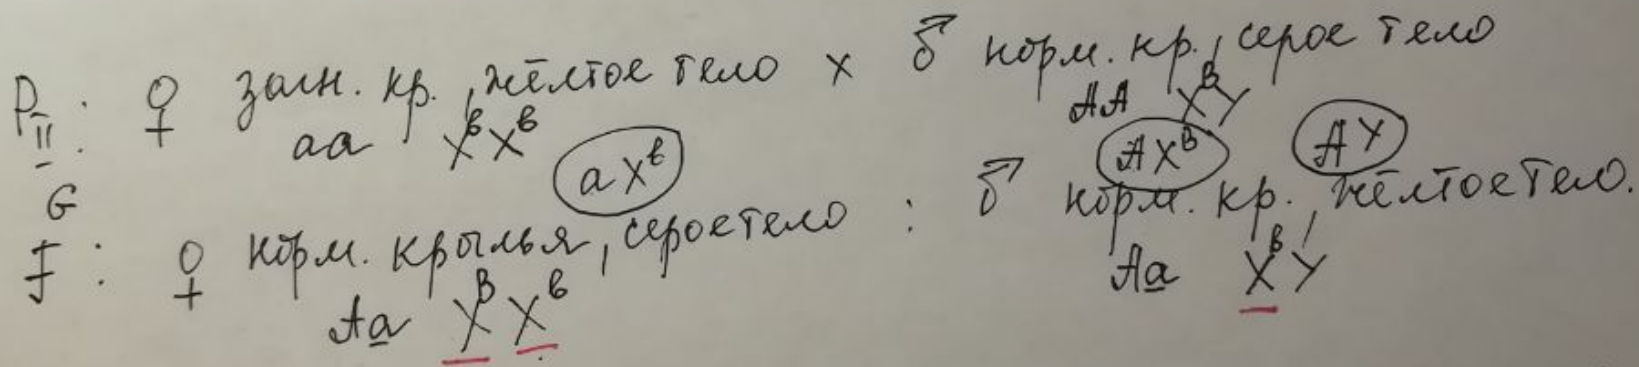 P II : ♀ загн. кр., жёлтое тело х ♂ норм. кр., серое тело
аа X^в X^в AA X^B Y
G (а X^в) (A X^B) (A Y)
F : ♀ норм. крылья, серое тело : ♂ норм. кр., жёлтое тело.
Аа X^B X^в Аа X^в Y